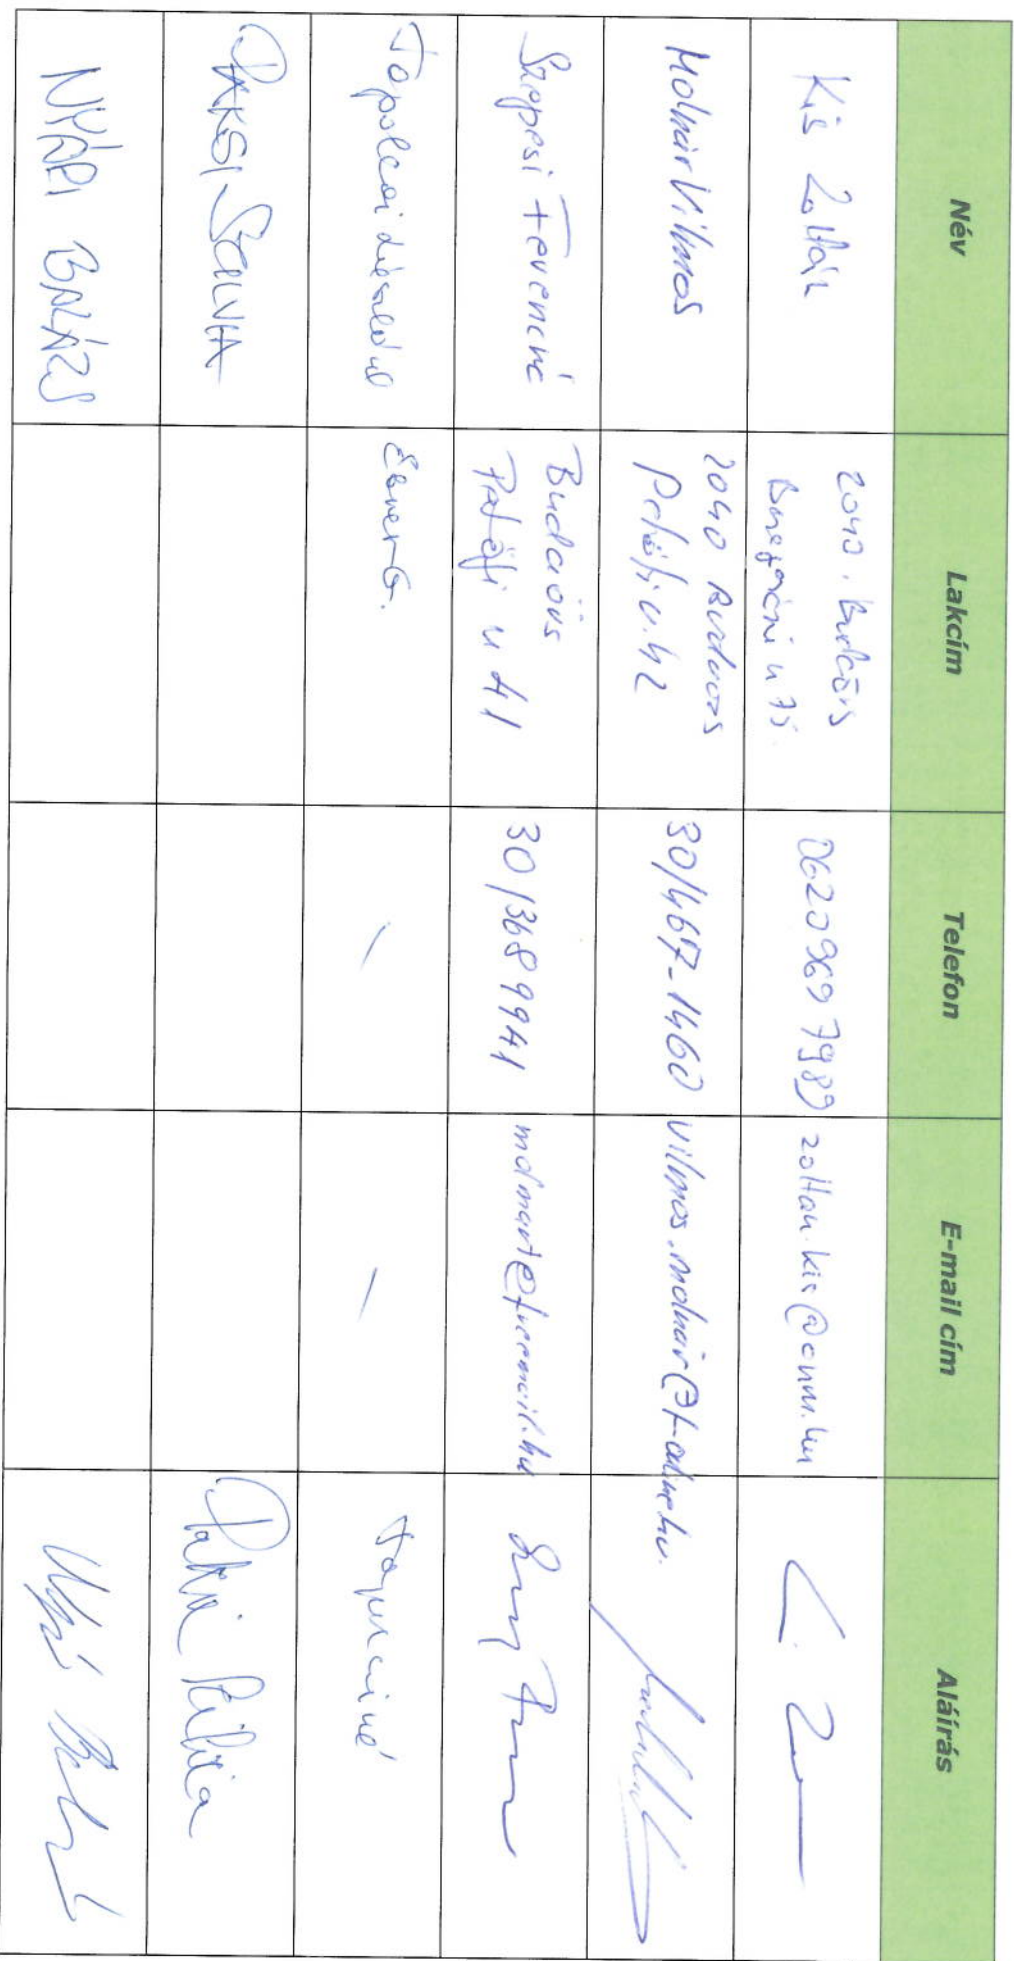 Név Lakcím Telefon E-mail cím Aláírás
Kis Zoltán
2040. Budaörs
u 75.
06209697989
zoltan.kis@onm.hu
K. Z
Molnár Vilmos
2040 Budaörs
Petőfi u. 42
30/467-1460
vilmos.molnár@t-online.hu.
Szeppesi Ferencné
Budaörs
Petőfi u 41
30/3689941
mdmart@freemail.hu
Topolcai
/
/
PAKSI SZILVIA
Paksi Szilvia
NYÁRI BALÁZS
Nyári Balázs